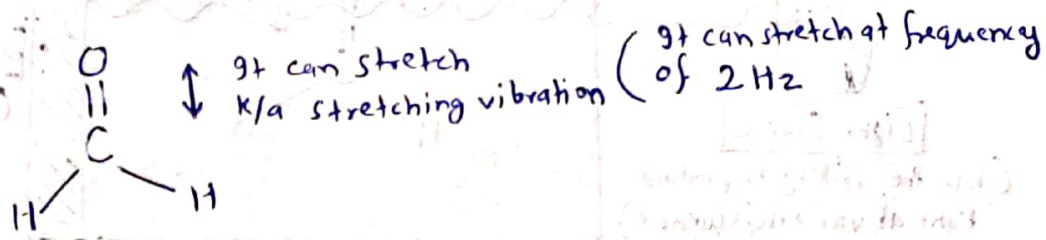 O
||
C
H
H
It can stretch
k/a stretching vibration
(It can stretch at frequency
of 2 Hz